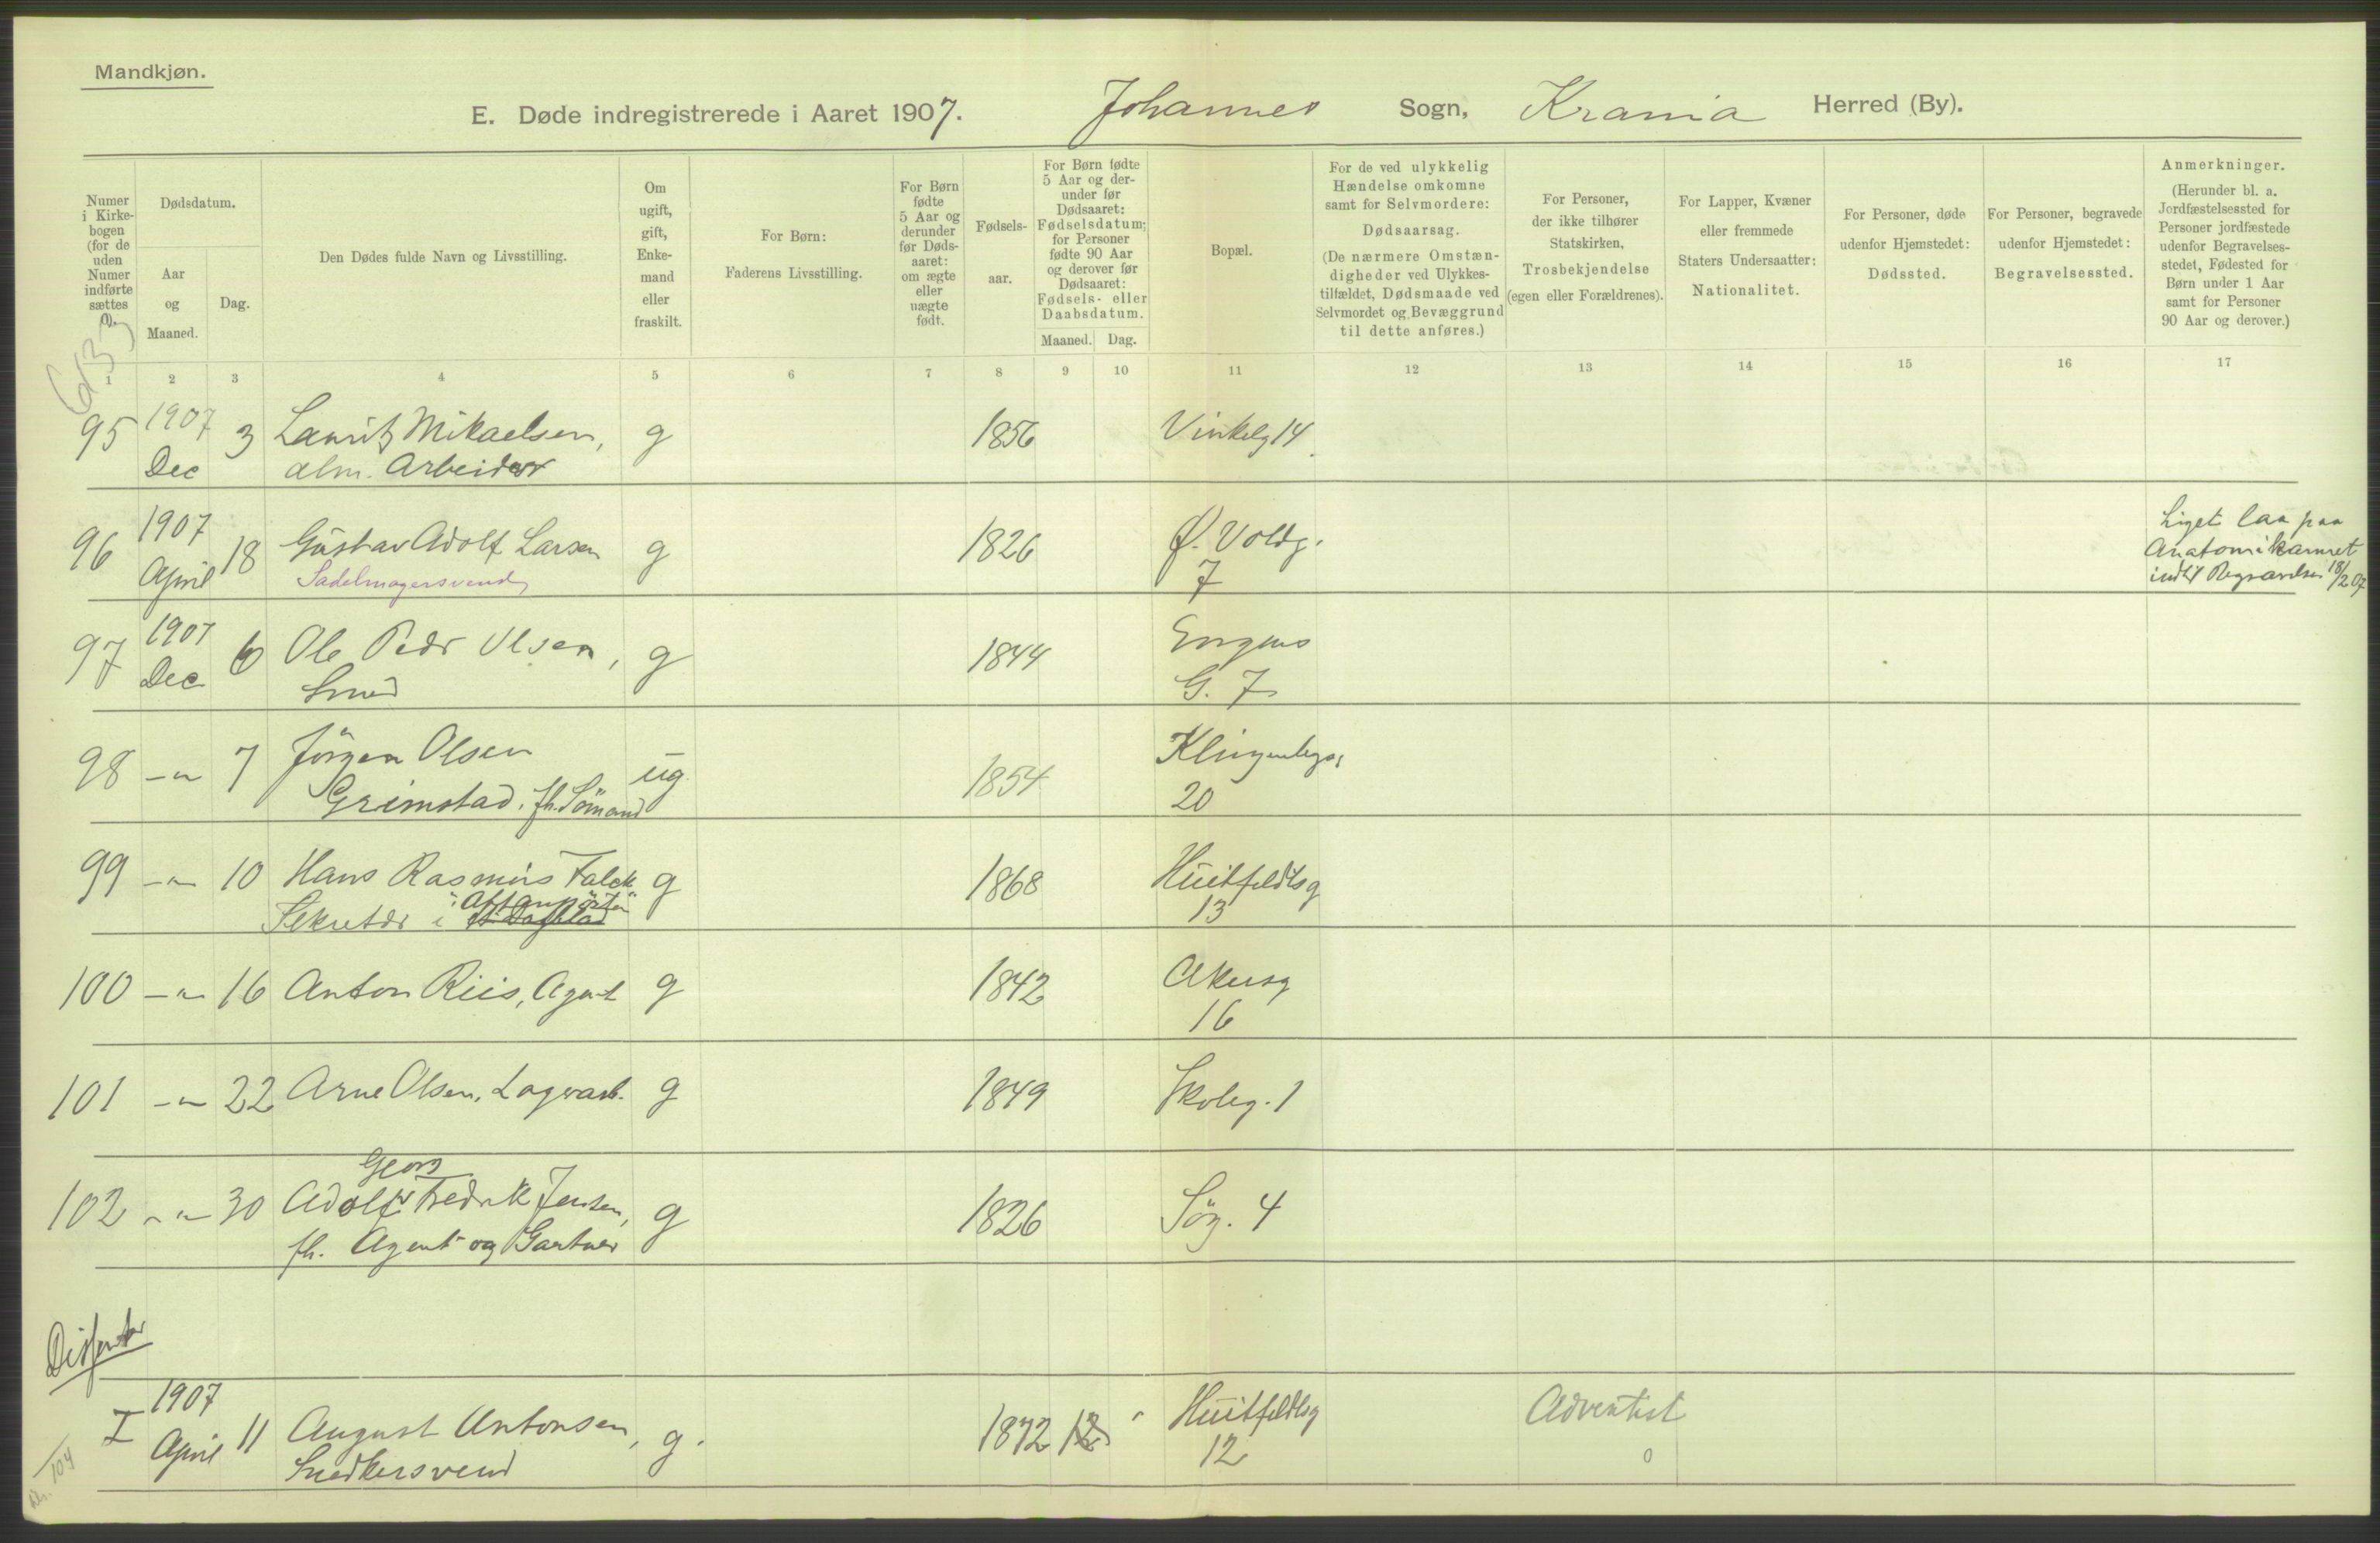 Mandkjøn.
E. Døde indregistrerede i Aaret 1907. Johannes Sogn, Krania Herred (By).
Numer i Kirkebogen (for de uden Numer indførte sættes
Dødsdatum.
Aar og Maaned.
Dag.
Den Dødes fulde Navn og Livsstilling.
Om ugift, gift, Enkemand eller fraskilt.
For Børn: Faderens Livsstilling.
For Børn fødte 5 Aar og derunder før Dødsaaret: om ægte eller uægte født.
Fødselsaar.
For Børn fødte 5 Aar og derunder før Dødsaaret: Fødselsdatum; for Personer fødte 90 Aar og derover før Dødsaaret: Fødsels- eller Daabsdatum.
Maaned. Dag.
Bopæl.
For de ved ulykkelig Hændelse omkomne samt for Selvmordere: Dødsaarsag. (De nærmere Omstændigheder ved Ulykkestilfældet, Dødsmaade ved Selvmordet og Bevæggrund til dette anføres.)
For Personer, der ikke tilhører Statskirken, Trosbekjendelse (egen eller Forældrenes).
For Lapper, Kvæner eller fremmede Staters Undersaatter: Nationalitet.
For Personer, døde udenfor Hjemstedet: Dødssted.
For Personer, begravede udenfor Hjemstedet: Begravelsessted.
Anmerkninger. (Herunder bl. a. Jordfæstelsessted for Personer jordfæstede udenfor Begravelsesstedet, Fødested for Børn under 1 Aar samt for Personer 90 Aar og derover.)
1 2 3 4 5 6 7 8 9 10 11 12 13 14 15 16 17
95 1907 Dec 3 Lauritz Mikaelsen, g 1856 Vinkelg 14
alm. Arbeider
96 1907 April 18 Gustav Adolf Larsen g 1826 Ø. Voldg. 7
Sadelmagersvend
Liget laa paa
Anatomikamret
indtil Begravelsen 18/2 07
97 1907 Dec 6 Ole Peder Olsen, g 1844 Engens G. 7
Smed
98 -"- 7 Jörgen Olsen ug 1854 Klingenbgs. 20
Grimstad. fh. Sömand
99 -"- 10 Hans Rasmus Falck g 1868 Huitfeldtsg 13
Sekretær i "Aftenposten"
100 -"- 16 Anton Riis, Agent g 1842 Akersg 16
101 -"- 22 Arne Olsen, Lagerarb. g 1849 Skoleg. 1
Georg
102 -"- 30 Adolf Fredrik Jensen, g 1826 Sög. 4
fh. Agent og Gartner
Dissenter
I 1907 April 11 August Antonsen, g. 1872 12 Huitfeldtsg 12 Adventist
Snedkersvend
104